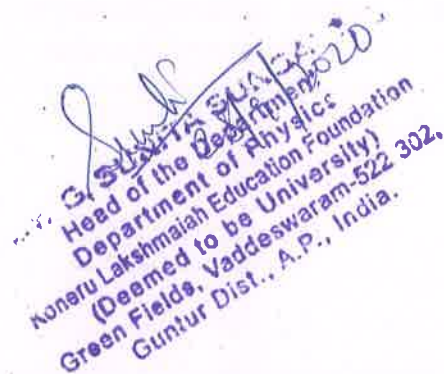 Head of the Department
Department of Physics
Koneru Lakshmaiah Education Foundation
(Deemed to be University)
Green Fields, Vaddeswaram-522 302,
Guntur Dist., A.P., India.